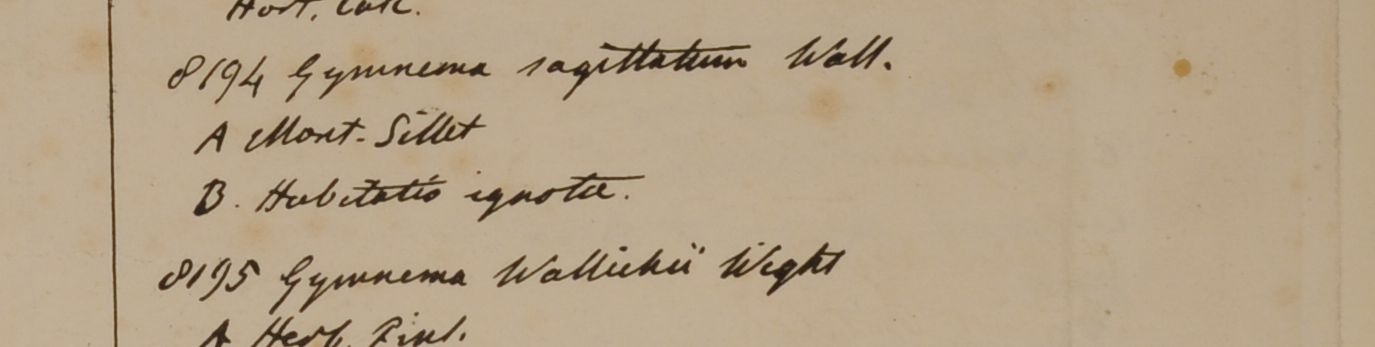 Hort. Calc.
8194 Gymnema sagittatum Wall.
A Mont. Sillet
B. Habitatio ignota.
8195 Gymnema Wallichii Wight
A Herb. Finl.